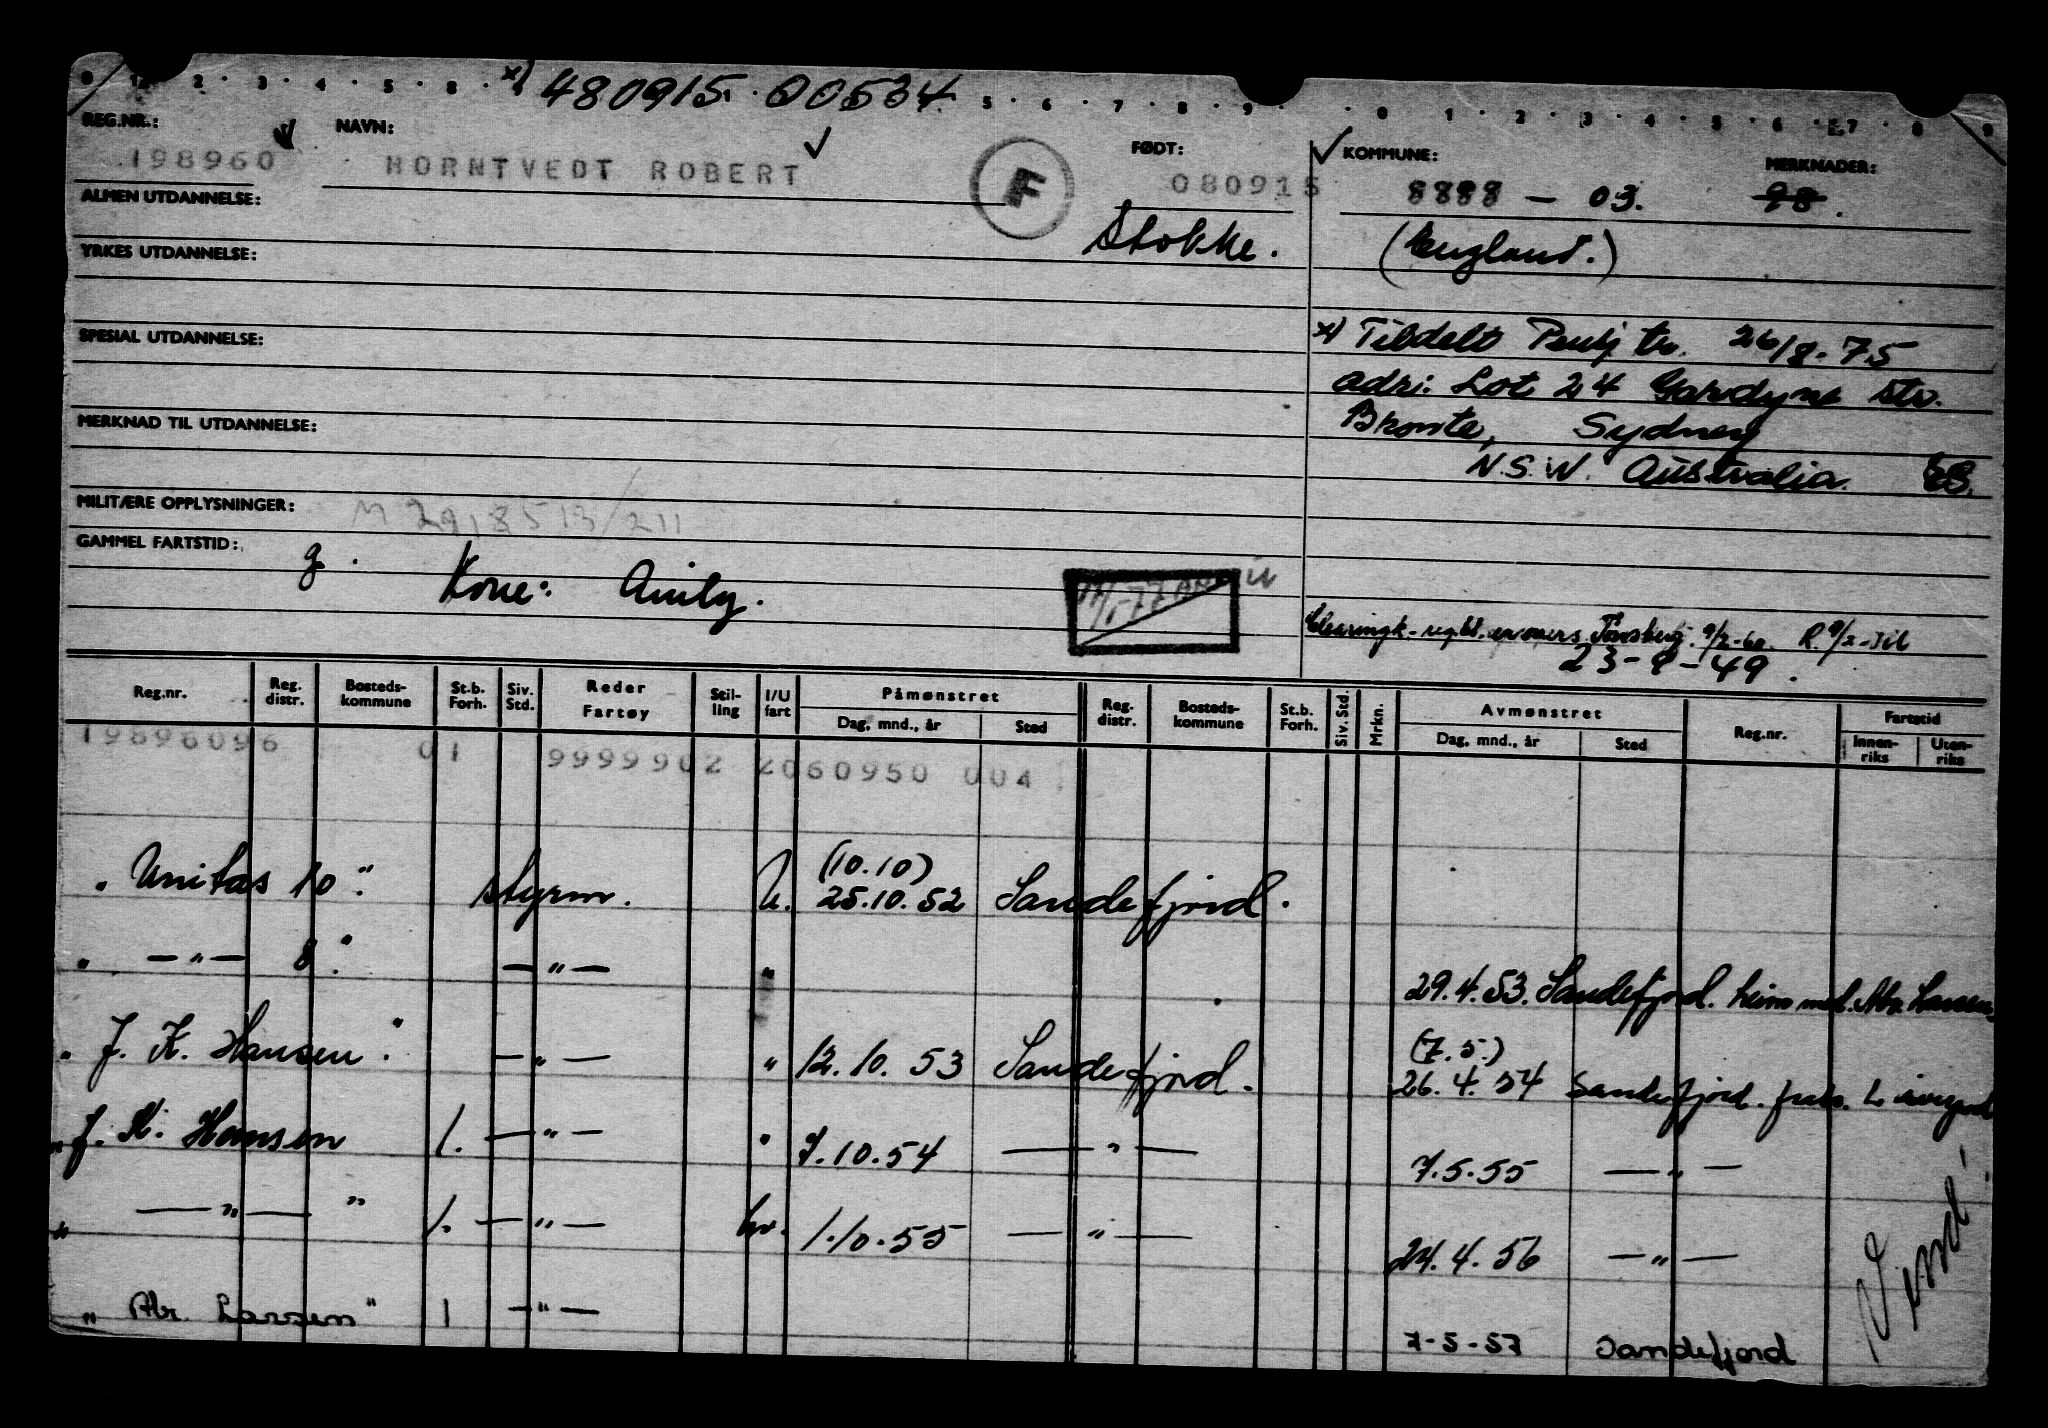 x) 480915. 00534
REG.NR.: NAVN: FØDT: KOMMUNE: MERKNADER:
198960 HORNTVEDT ROBERT F 080915 8888 - 03. 98.
ALMEN UTDANNELSE: Stokke. (England.)
YRKES UTDANNELSE:
SPESIAL UTDANNELSE:
x) Tildelt Pensj.nr. 26/8-75
adr: Lot 24 Gardyne Str.
Bronte, Sydney
N.S.W. Australia. ES.
MERKNAD TIL UTDANNELSE:
MILITÆRE OPPLYSNINGER: M 2918513/211
GAMMEL FARTSTID: g.
Kone: Emily.
Tønsberg. 9/2-60. R. 9/2-
23-9-49.
Reg.nr. Reg. distr. Bosteds-kommune St.b. Forh. Siv. Std. Reder Fartøy Stil-ling I/U fart Påmønstret Dag, mnd., år Sted Reg. distr. Bosteds-kommune St.b. Forh. Siv. Std. Mrkn. Avmønstret Dag, mnd., år Sted Reg.nr. Fartstid Innen-riks Uten-riks
19896096 01 9999902 2060950 004
(10.10)
"Unitas 10". styrm. U. 25.10.52 Sandefjord.
" — " — 8". — " — " 29.4.53. Sandefjord. heim med. Abr. Larsen.
(7.5.)
"J. K. Hansen". — " — " 12.10.53 Sandefjord. 26.4.54 Sandefjord.
"J. K. Hansen 1. — " — " 7.10.54 — " — 7.5.55 — " —
" — " — " 1. — " — hv. 1.10.55 — " — 24.4.56 — " —
"Abr. Larsen" 1 — " — 7-5-57 Sandefjord
Vend!